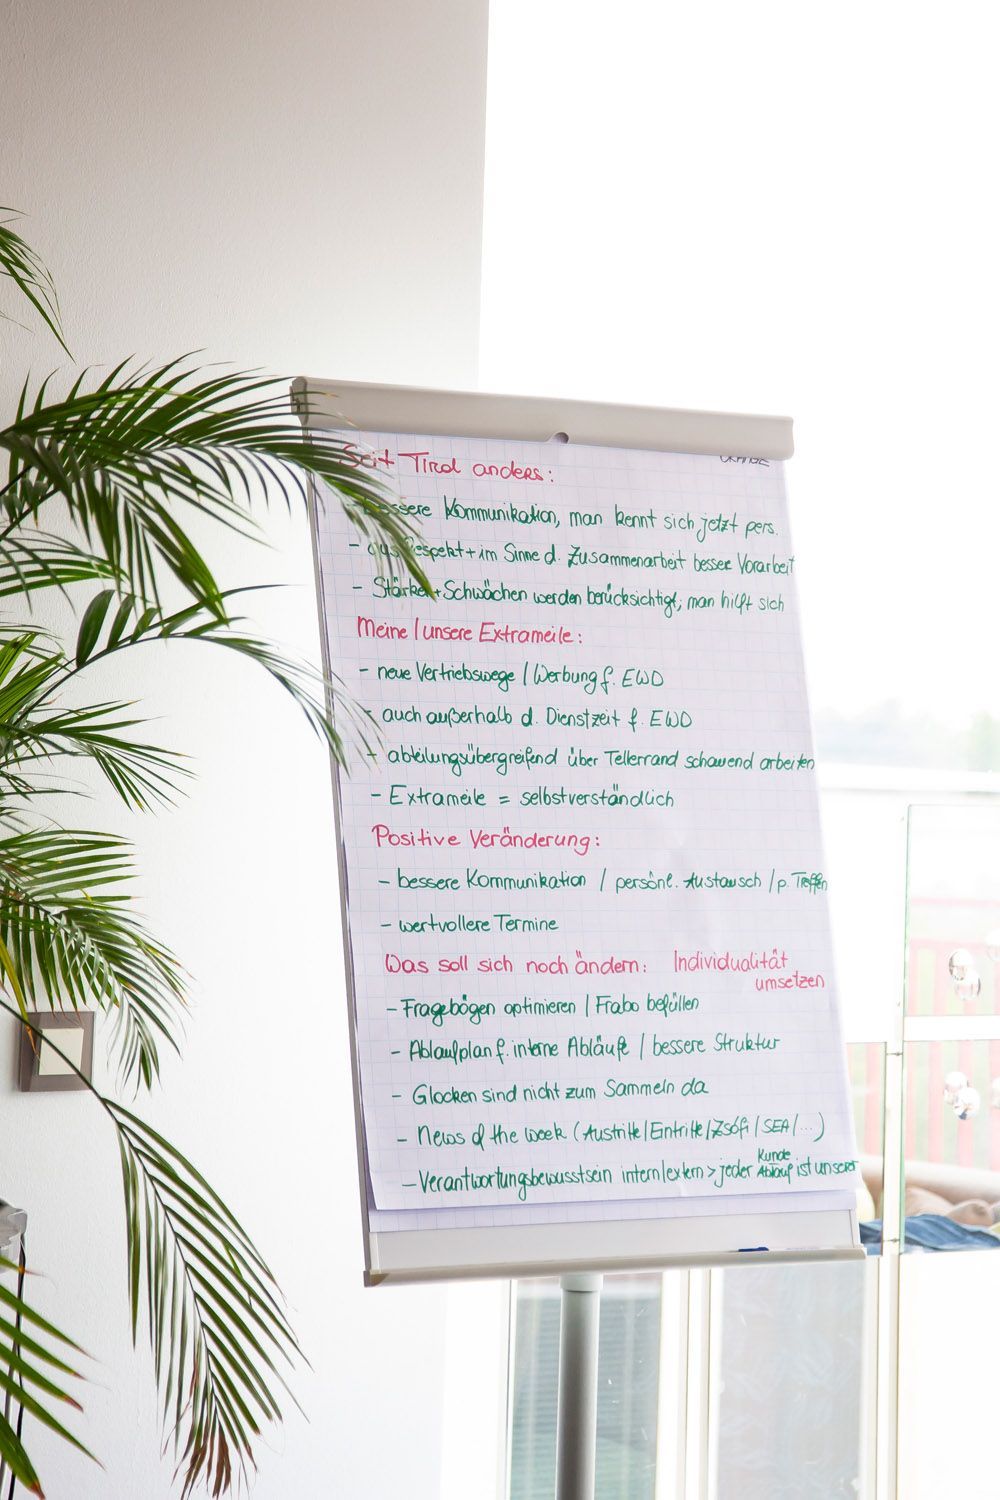 ORANGE
Seit Tirol anders:
- bessere Kommunikation, man kennt sich jetzt pers.
- aus Respekt + im Sinne d. Zusammenarbeit besser Vorarbeit
- Stärken + Schwächen werden berücksichtigt; man hilft sich
Meine / unsere Extrameile:
- neue Vertriebswege / Werbung f. EWD
- auch außerhalb d. Dienstzeit f. EWD
- abteilungsübergreifend über Tellerrand schauend arbeiten
- Extrameile = selbstverständlich
Positive Veränderung:
- bessere Kommunikation / persönl. Austausch / p. Treffen
- wertvollere Termine
Was soll sich noch ändern: Individualität
umsetzen
- Fragebögen optimieren / Frabo befüllen
- Ablaufplan f. interne Abläufe / bessere Struktur
- Glocken sind nicht zum Sammeln da
- News of the week (Austritte/Eintritte/Zsófi/SEA/...)
Kunde
- Verantwortungsbewusstsein intern/extern > jeder Ablauf ist unserer